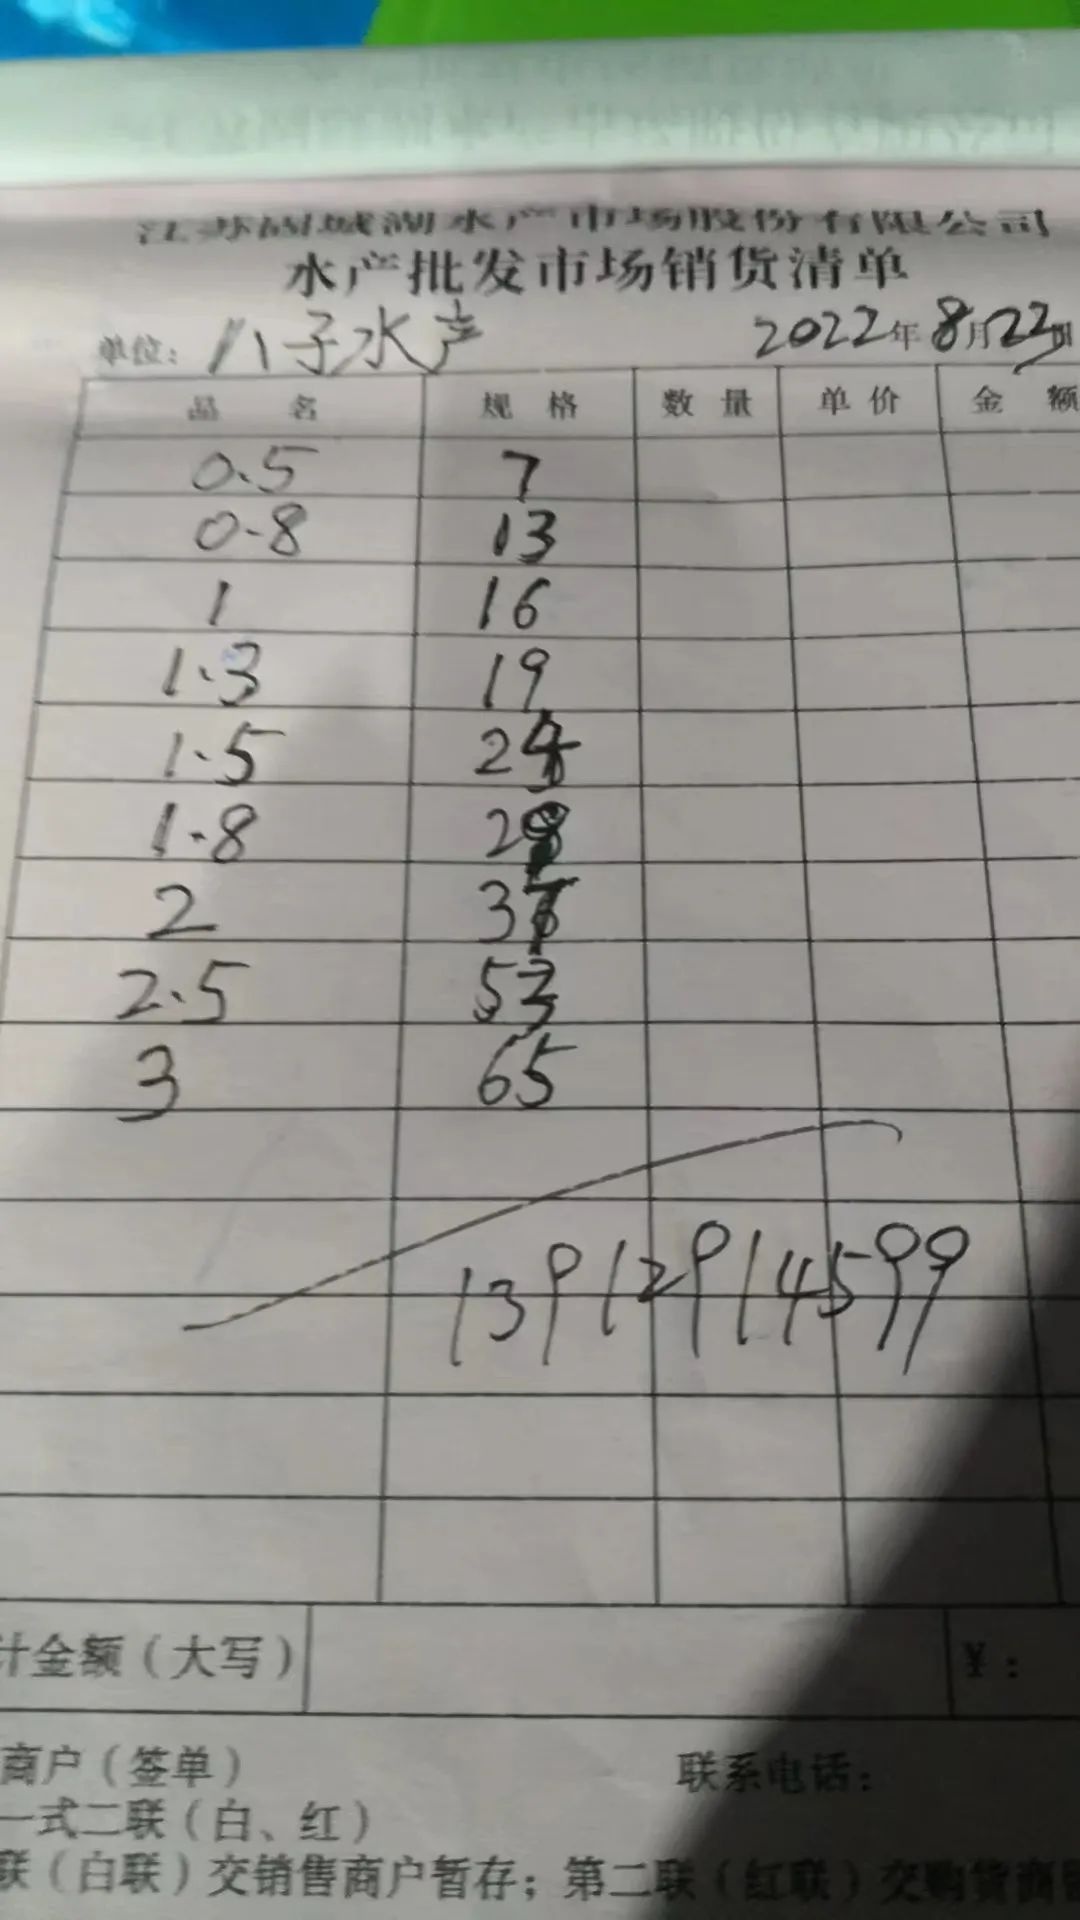 江苏固城湖水产市场股份有限公司
水产批发市场销货清单
单位: 八子水产 2022年8月23日
品名 规格 数量 单价 金额
0.5 7
0.8 13
1 16
1.3 19
1.5 2
1.8 2
2 3
2.5 5
3 65
13912914599
计金额(大写) ¥:
商户(签单) 联系电话:
一式二联(白、红)
联(白联)交销售商户暂存;第二联(红联)交购货商